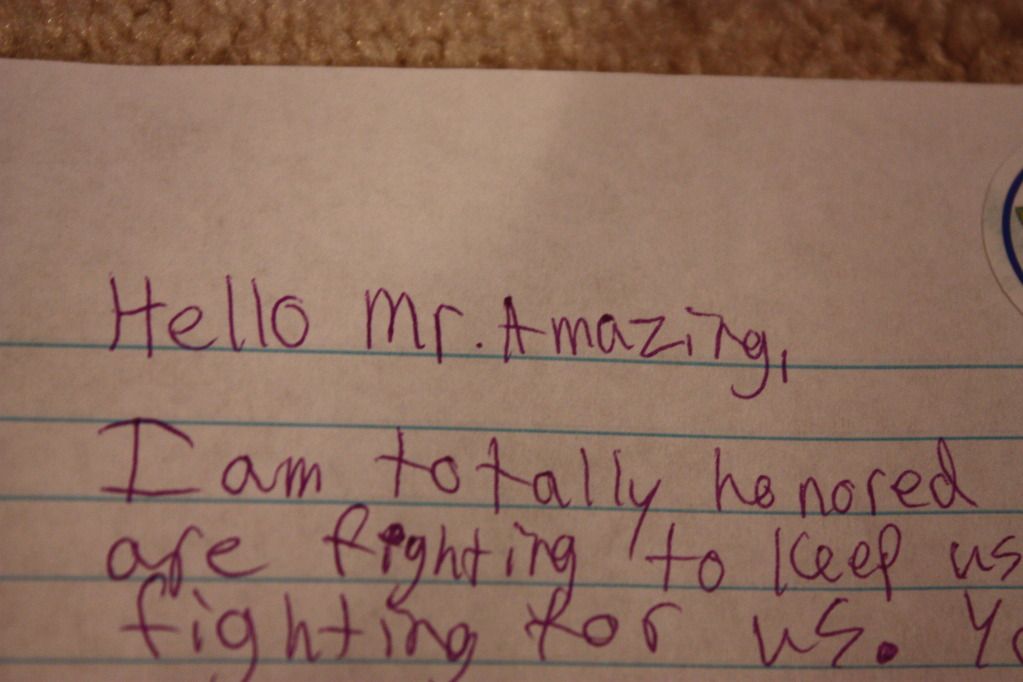 Hello Mr. Amazing,
I am totally honored
are fighting to keep us
fighting for us. Yo